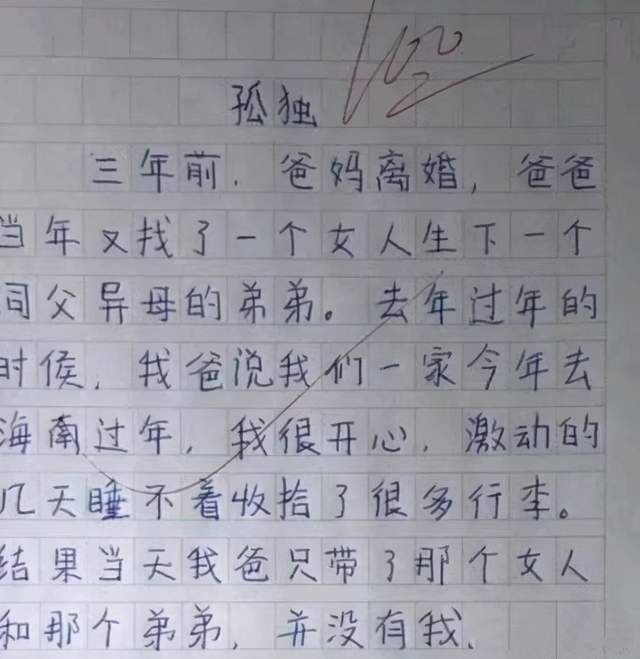 100
孤独
三年前，爸妈离婚，爸爸
当年又找了一个女人生下一个
同父异母的弟弟。去年过年的
时侯，我爸说我们一家今年去
海南过年，我很开心，激动的
几天睡不着收拾了很多行李。
结果当天我爸只带了那个女人
和那个弟弟，并没有我、